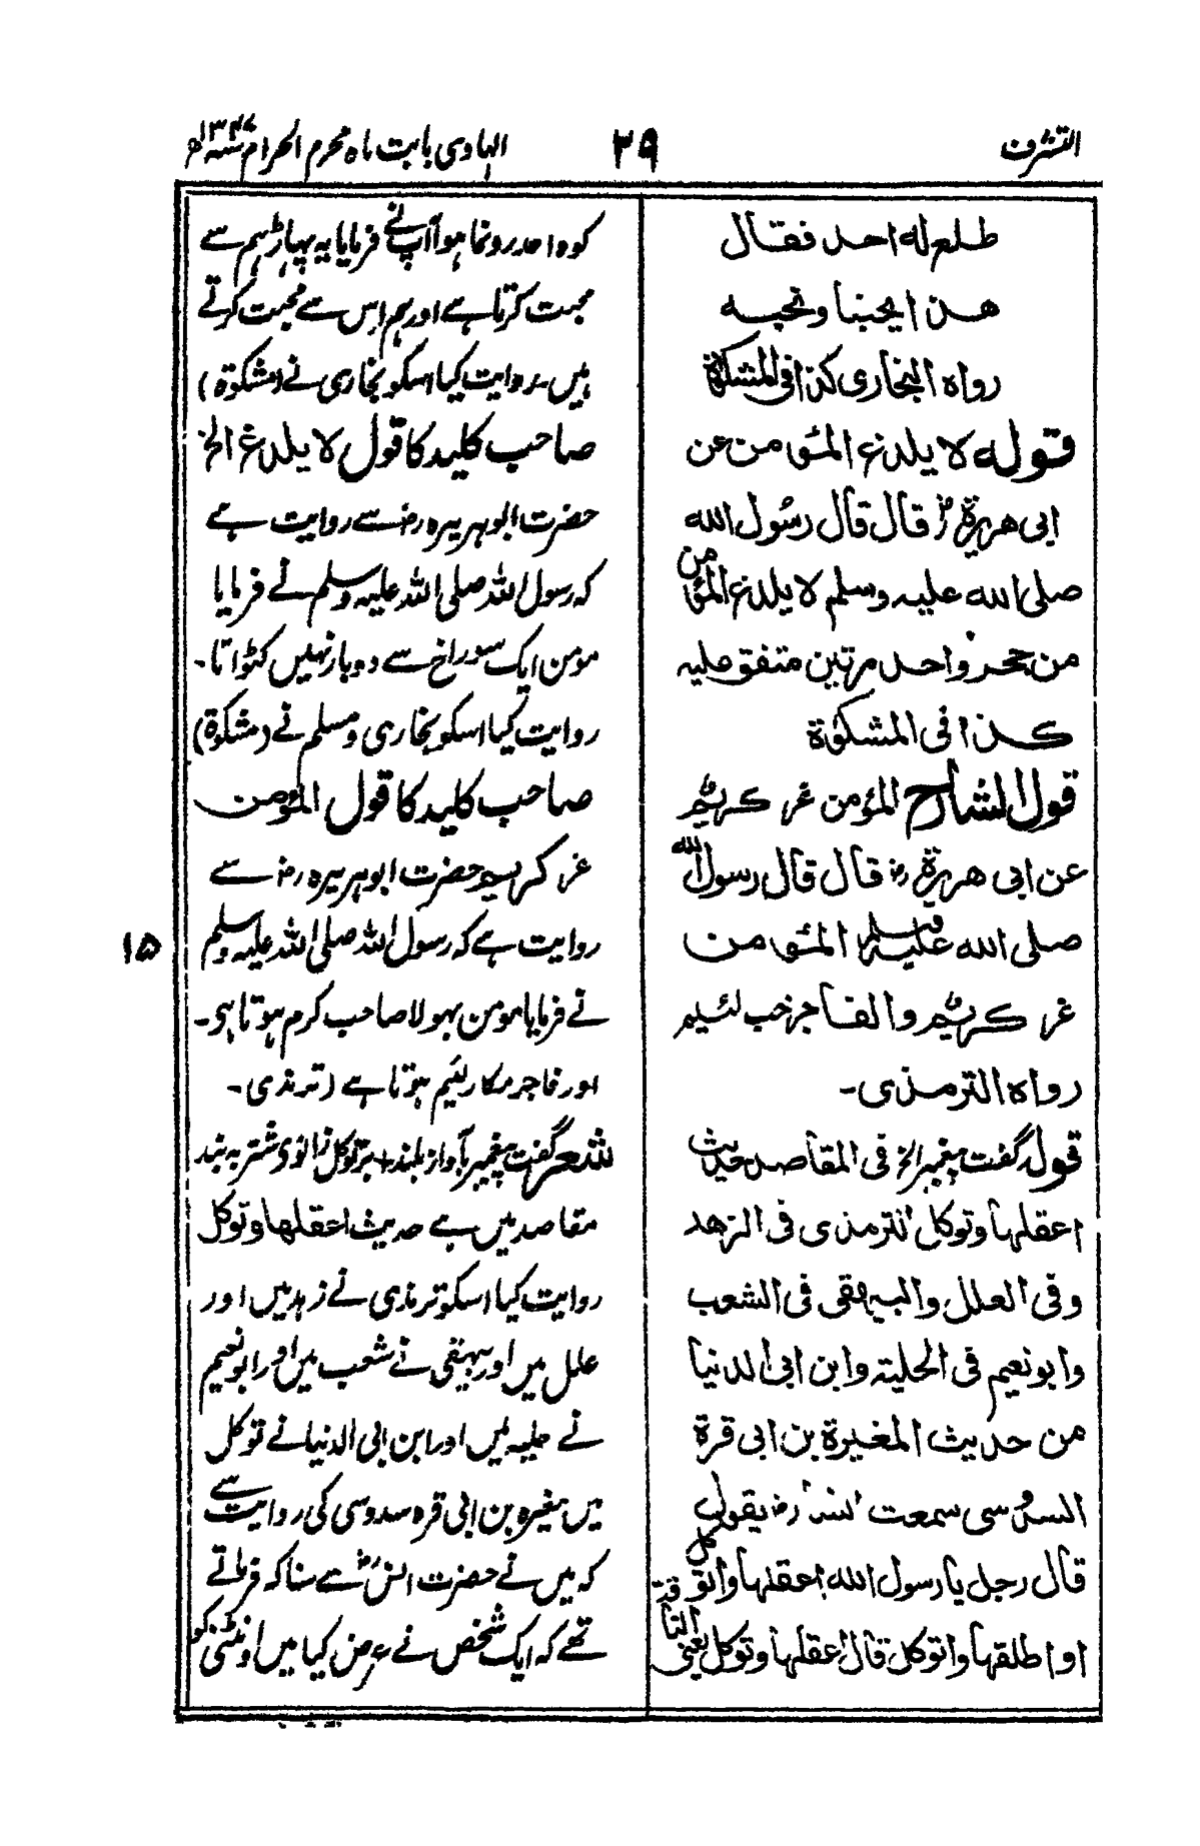 التشرف
۲۹
الہادی بابت ماہ محرم الحرام ۱۳۴۷ھ
طلع له احد فقال
هذا يحبنا ونحبه
رواه البخاری كذا فی المشكوٰة
قوله لا يلدغ المؤمن عن
ابی هريرةؓ قال قال رسول الله
صلی الله عليه وسلم لا يلدغ المؤمن
من جحر واحد مرتين متفق عليه
كذا فی المشكوٰة
قول الشارح المؤمن غر كريم
عن ابی هريرة رض قال قال رسول الله
صلی الله عليه وسلم المؤمن
غر كريم والفاجر خب لئيم
رواه الترمذی۔
قوله گفت پیغمبر الخ فی المقاصد حديث
اعقلها وتوكل الترمذی فی الزهد
وفی العلل والبيهقی فی الشعب
وابو نعيم فی الحلية وابن ابی الدنيا
من حديث المغيرة بن ابی قرة
السدوسی سمعت انسا رض يقول
قال رجل يا رسول الله اعقلها واتوكل
او اطلقها واتوكل قال اعقلها وتوكل يعنی الناقة
کوہ احد رونما ہوا آپ نے فرمایا یہ پہاڑ ہم سے
محبت کرتا ہے اور ہم اس سے محبت کرتے
ہیں۔ روایت کیا اسکو بخاری نے (مشکوٰۃ)
صاحب کلید کا قول لا یلدغ الخ
حضرت ابوہریرہ رض سے روایت ہے
کہ رسول اللہ صلی اللہ علیہ وسلم نے فرمایا
مومن ایک سوراخ سے دو بار نہیں کٹواتا۔
روایت کیا اسکو بخاری و مسلم نے (مشکوٰۃ)
صاحب کلید کا قول المؤمن
غر کریم حضرت ابوہریرہ رض سے
روایت ہے کہ رسول اللہ صلی اللہ علیہ وسلم
نے فرمایا مومن بھولا صاحب کرم ہوتا ہی۔
اور فاجر مکار لئیم ہوتا ہے (ترمذی۔
شعر گفت پیغمبر بآواز بلند + بر توکل زانوی اشتر بہ بند
مقاصد میں ہے حدیث اعقلها وتوکل
روایت کیا اسکو ترمذی نے زہد میں اور
علل میں اور بیہقی نے شعب میں اور ابو نعیم
نے حلیہ میں اور ابن ابی الدنیا نے توکل
میں مغیرہ بن ابی قرہ سدوسی کی روایت سے
کہ میں نے حضرت انسؓ سے سنا کہ فرماتے
تھے کہ ایک شخص نے عرض کیا میں اونٹنی کو
۱۵